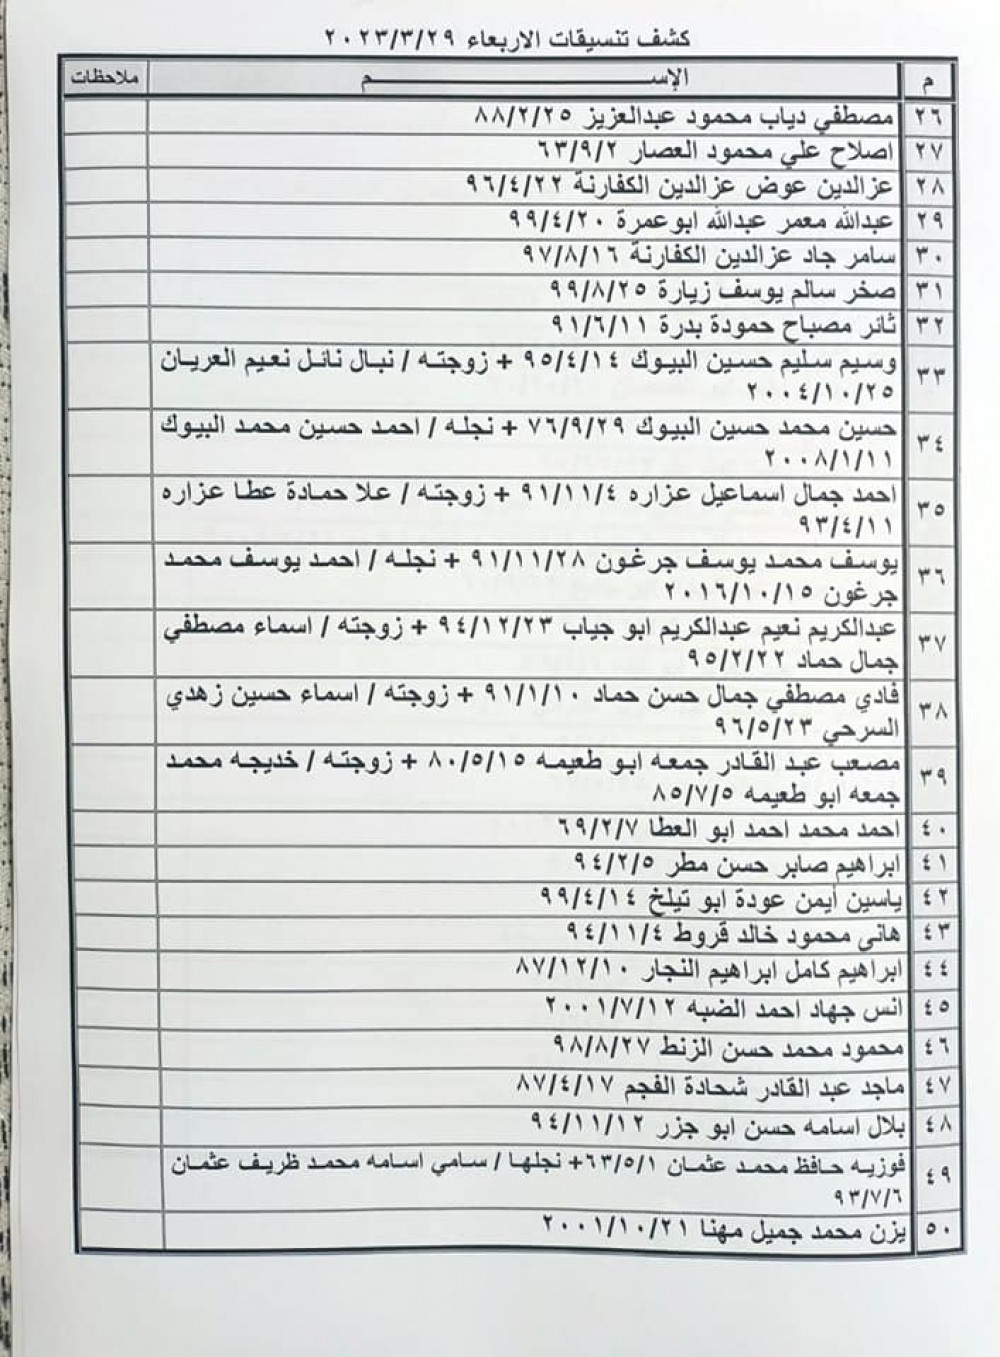 كشف تنسيقات الاربعاء ٢٠٢٣/٣/٢٩
م الإســـــــــم ملاحظات
٢٦ مصطفي دياب محمود عبدالعزيز ٨٨/٢/٢٥
٢٧ اصلاح علي محمود العصار ٦٣/٩/٢
٢٨ عزالدين عوض عزالدين الكفارنة ٩٦/٤/٢٢
٢٩ عبدالله معمر عبدالله ابوعمرة ٩٩/٤/٢٠
٣٠ سامر جاد عزالدين الكفارنة ٩٧/٨/١٦
٣١ صخر سالم يوسف زيارة ٩٩/٨/٢٥
٣٢ ثائر مصباح حمودة بدرة ٩١/٦/١١
٣٣ وسيم سليم حسين البيوك ٩٥/٤/١٤ + زوجته / نبال نائل نعيم العريان
٢٠٠٤/١٠/٢٥
٣٤ حسين محمد حسين البيوك ٧٦/٩/٢٩ + نجله / احمد حسين محمد البيوك
٢٠٠٨/١/١١
٣٥ احمد جمال اسماعيل عزاره ٩١/١١/٤ + زوجته / علا حمادة عطا عزاره
٩٣/٤/١١
٣٦ يوسف محمد يوسف جرغون ٩١/١١/٢٨ + نجله / احمد يوسف محمد
جرغون ٢٠١٦/١٠/١٥
٣٧ عبدالكريم نعيم عبدالكريم ابو جياب ٩٤/١٢/٢٣ + زوجته / اسماء مصطفي
جمال حماد ٩٥/٢/٢٢
٣٨ فادي مصطفي جمال حسن حماد ٩١/١/١٠ + زوجته / اسماء حسين زهدي
السرحي ٩٦/٥/٢٣
٣٩ مصعب عبد القادر جمعه ابو طعيمه ٨٠/٥/١٥ + زوجته / خديجه محمد
جمعه ابو طعيمه ٨٥/٧/٥
٤٠ احمد محمد احمد ابو العطا ٦٩/٢/٧
٤١ ابراهيم صابر حسن مطر ٩٤/٢/٥
٤٢ ياسين أيمن عودة ابو تيلخ ٩٩/٤/١٤
٤٣ هاني محمود خالد قروط ٩٤/١١/٤
٤٤ ابراهيم كامل ابراهيم النجار ٨٧/١٢/١٠
٤٥ انس جهاد احمد الضبه ٢٠٠١/٧/١٢
٤٦ محمود محمد حسن الزنط ٩٨/٨/٢٧
٤٧ ماجد عبد القادر شحادة الفجم ٨٧/٤/١٧
٤٨ بلال اسامه حسن ابو جزر ٩٤/١١/١٢
٤٩ فوزيه حافظ محمد عثمان ٦٣/٥/١+ نجلها / سامي اسامه محمد ظريف عثمان
٩٣/٧/٦
٥٠ يزن محمد جميل مهنا ٢٠٠١/١٠/٢١